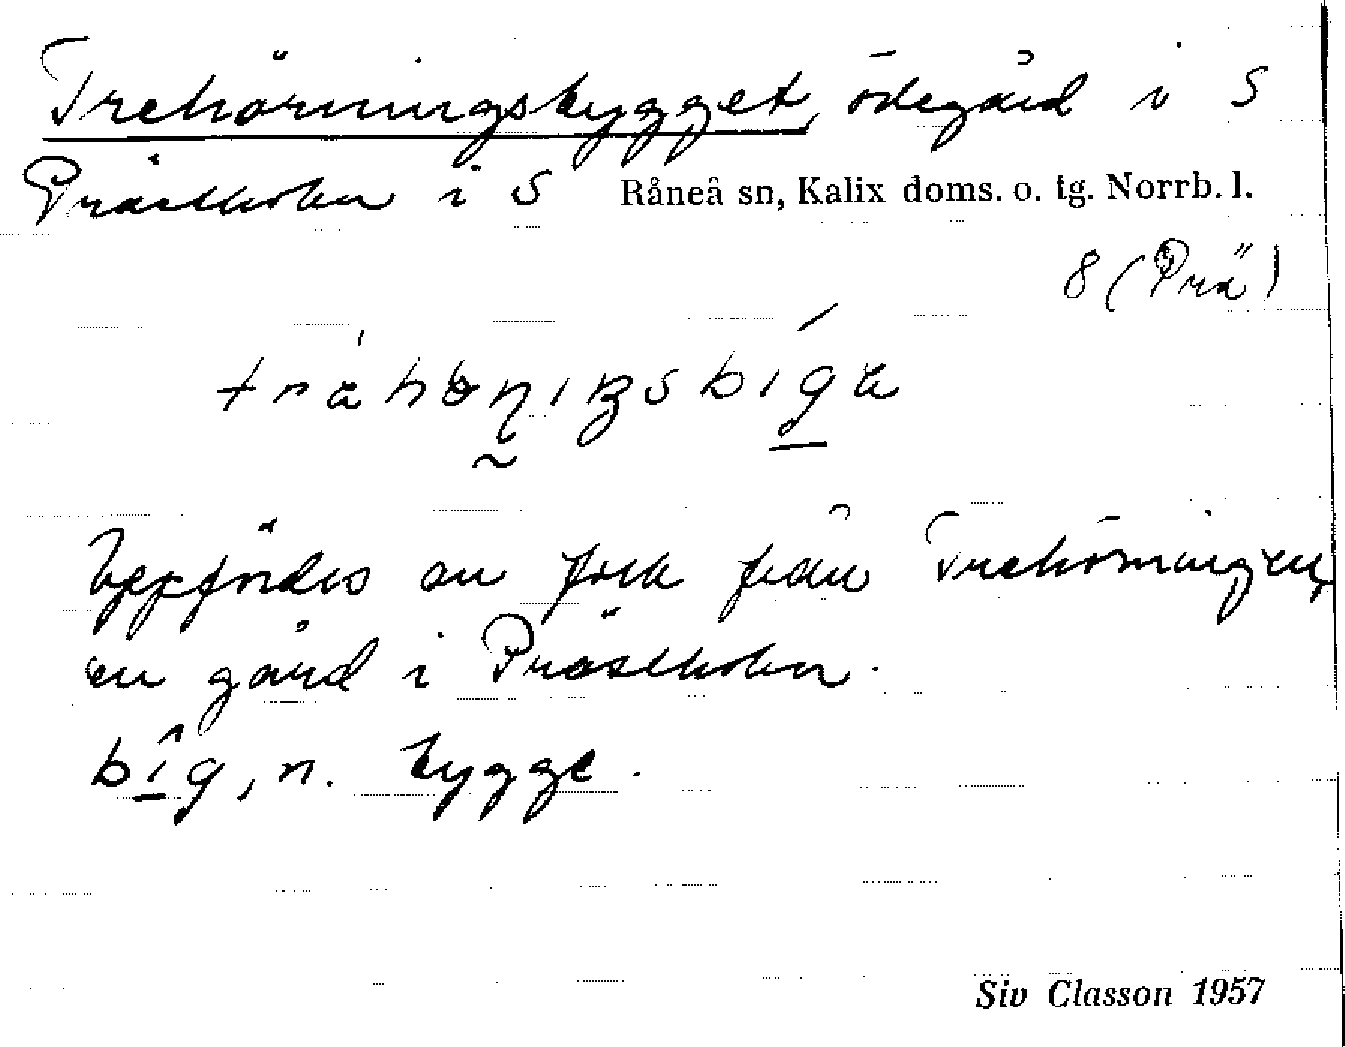 Trehörningsbygget, ödegård i S
Prästholm i S Råneå sn, Kalix doms. o. tg. Norrb. l.
8 (Prä)
Uppfördes av folk från Trehörningen,
en gård i Prästholm.
bîg, n. bygge.
Siv Classon 1957